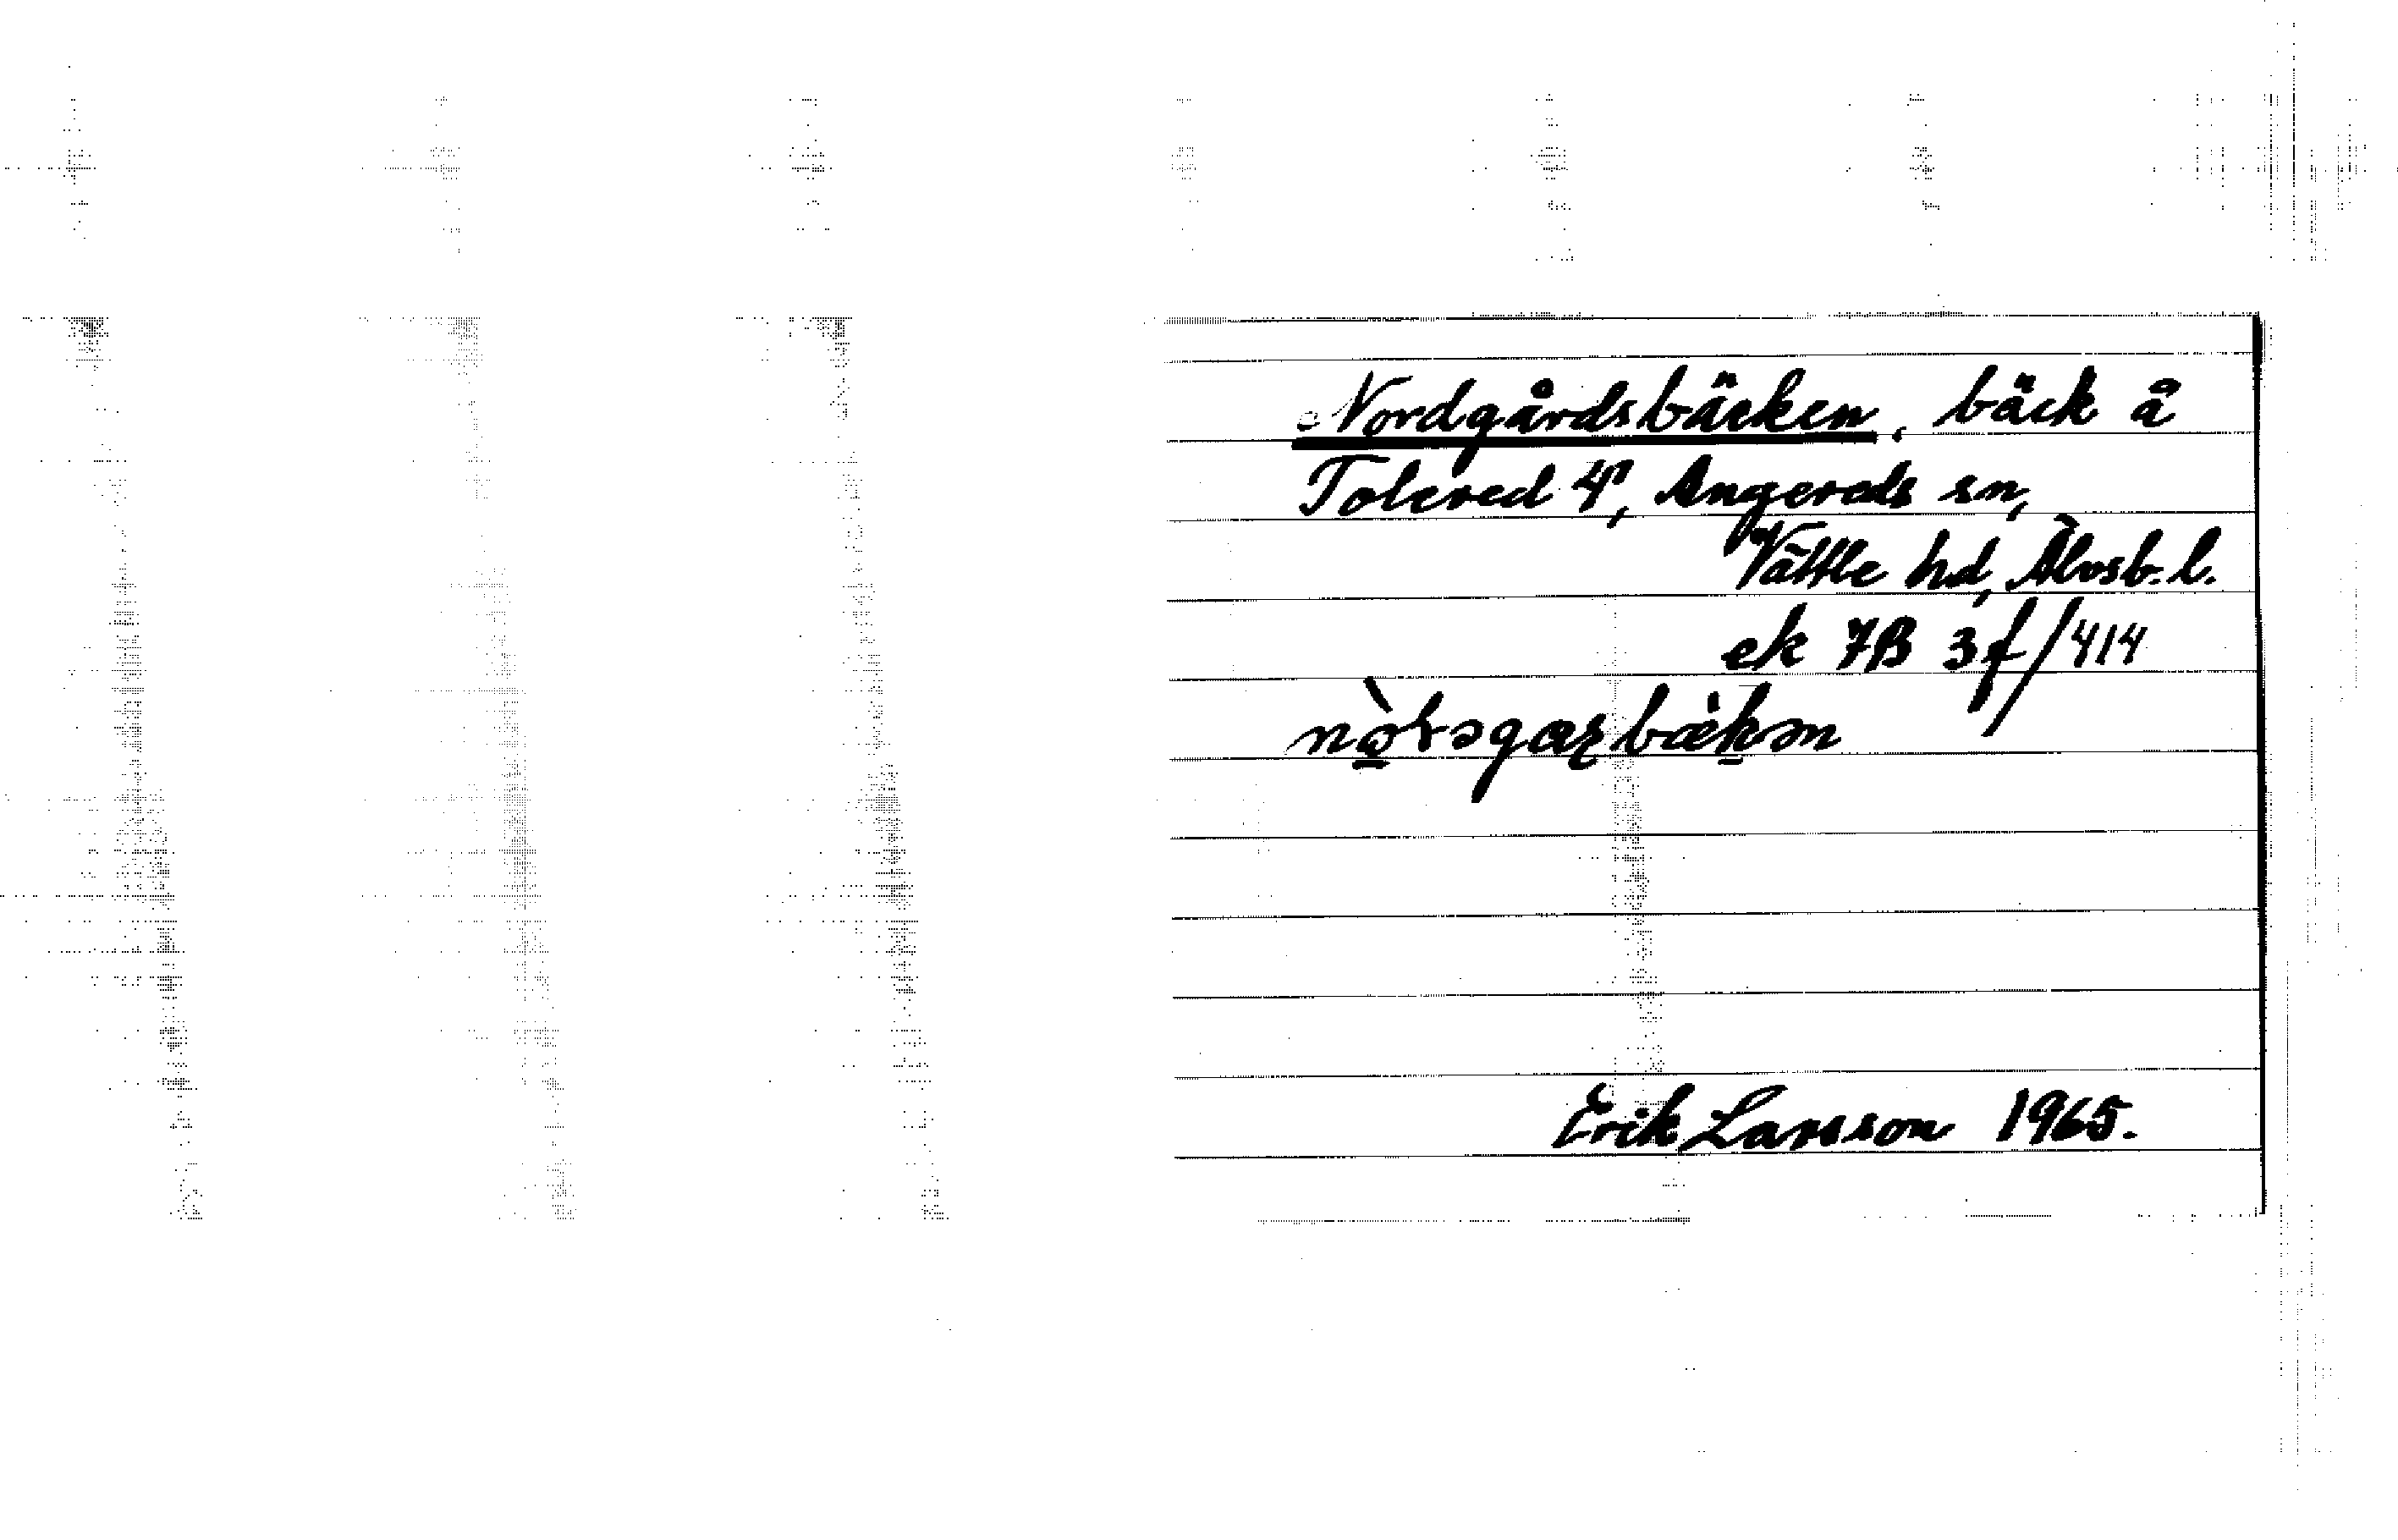 Nordgårdsbäcken, bäck å
Tolered 4¹, Angereds sn,
Vättle hd, Älvsb. l.
ek 7B 3f/414
Erik Larsson 1965.